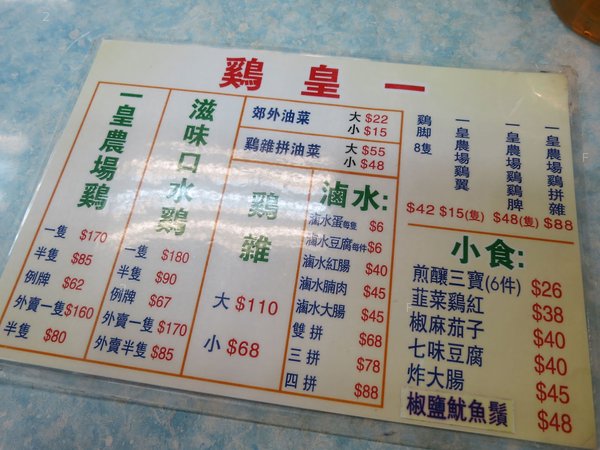 鷄皇一
一皇農場鷄
一隻 $170
半隻 $85
例牌 $62
外賣一隻 $160
半隻 $80
滋味口水鷄
一隻 $180
半隻 $90
例牌 $67
外賣一隻 $170
外賣半隻 $85
郊外油菜 大 $22
小 $15
鷄雜拼油菜 大 $55
小 $48
鷄雜
大 $110
小 $68
滷水:
滷水蛋每隻 $6
滷水豆腐每件 $6
滷水紅腸 $40
滷水腩肉 $45
滷水大腸 $45
雙拼 $68
三拼 $78
四拼 $88
鷄脚8隻 $42
一皇農場鷄翼 $15(隻)
一皇農場鷄鷄脾 $48(隻)
一皇農場鷄拼雜 $88
小食:
煎釀三寶(6件) $26
韮菜鷄紅 $38
椒麻茄子 $40
七味豆腐 $40
炸大腸 $45
椒鹽魷魚鬚 $48